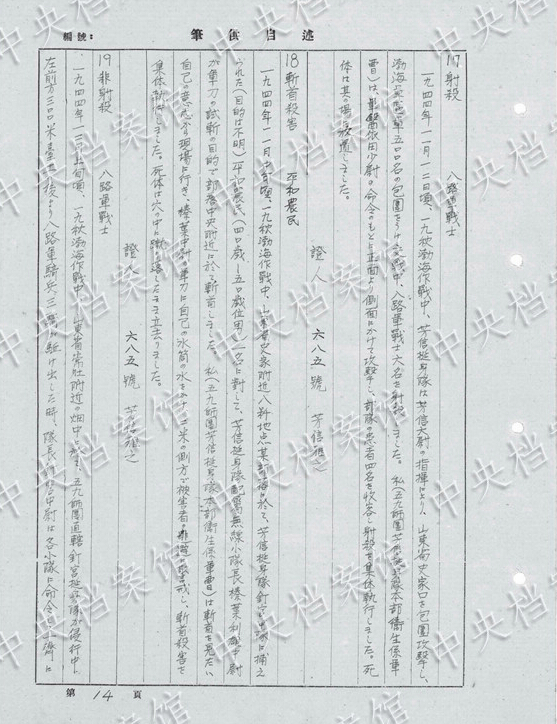 筆供自述
編號：
17 射殺　八路軍戦士
一九四四年一一月一二日頃、一九秋渤海作戦中、芳信挺身隊は芳信大尉の指揮により、山東省史家口を包囲攻撃し、
渤海軍区八路軍五〇〇名の包囲をうけ交戦中、八路軍戦士六名を射殺しました。私（五九師團芳信挺身隊本部衛生係軍
曹）は、依田少尉の命令のもとに正面より側面にかけて攻撃し、部隊の患者四名を收容し射殺を集体執行しました。死
体は其の場に放置しました。
證人　六八五號　芳信雅之
18 斬首殺害　平和農民
一九四四年一一月中旬頃、一九秋渤海作戦中、山東省史家附近八粁地点某部落に於て、芳信挺身隊釘宮 に捕え
られた（目的は不明）平和農民（四〇歳—五〇歳位男）一名に対して、芳信挺身隊配属無線小隊長榛葉 中尉
が軍刀の試斬の目的で部落中央附近に於て斬首しました。私（五九師團芳信挺身隊本部衛生係軍曹）は斬首を見たい
自己の意志から現場に行き、榛葉中尉の軍刀に自己の水筒の水をかけ 米の側方で被害者の逃道を警戒し、斬首殺害を
集体執行しました。死体は穴の中に蹴り落したまま立去りました。
證人　六八五號　芳信雅之
19 非射殺　八路軍戦士
一九四四年一一月上旬頃、一九秋渤海作戦中、山東省常社附近の畑に於て、五九師團直轄釘宮挺身隊が侵行中
左前方三〇〇米 後より八路軍騎兵三 が駆け出した時、隊長釘宮中尉は各小隊に命令し一齊に
第 14 頁
中央档案馆